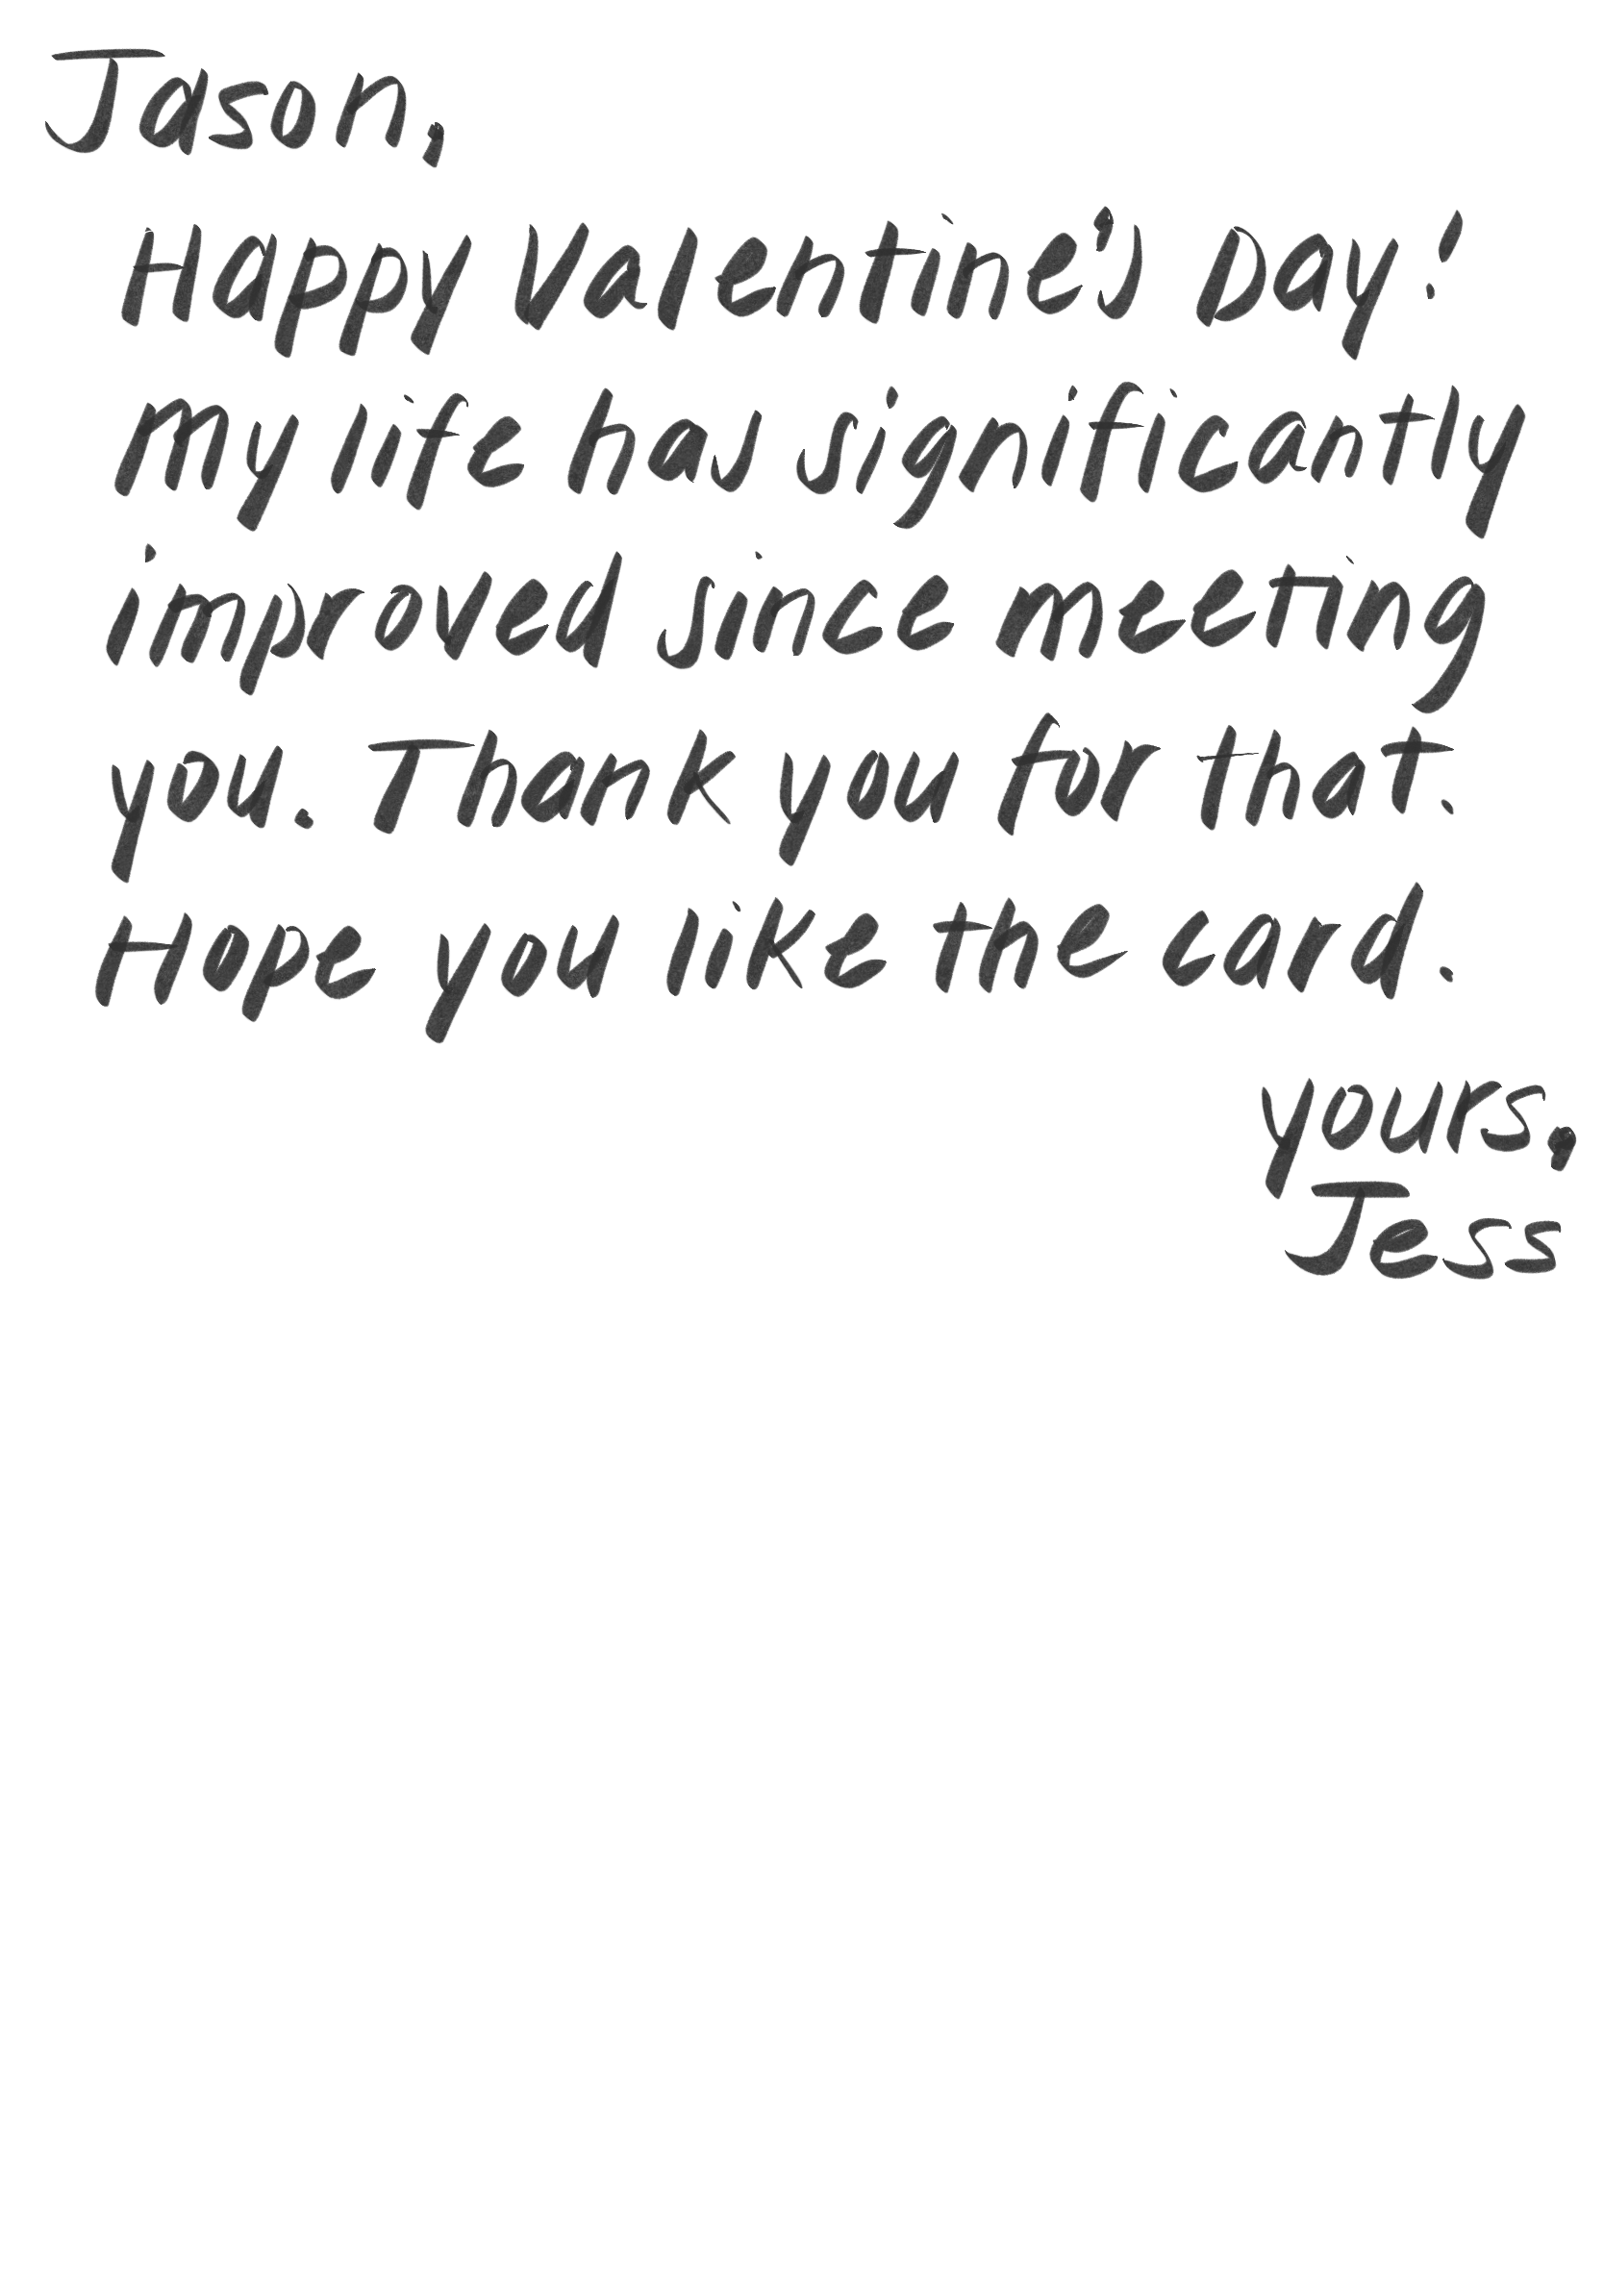 Jason,
Happy Valentine's Day!
My life has significantly
improved since meeting
you. Thank you for that.
Hope you like the card.
yours,
Jess